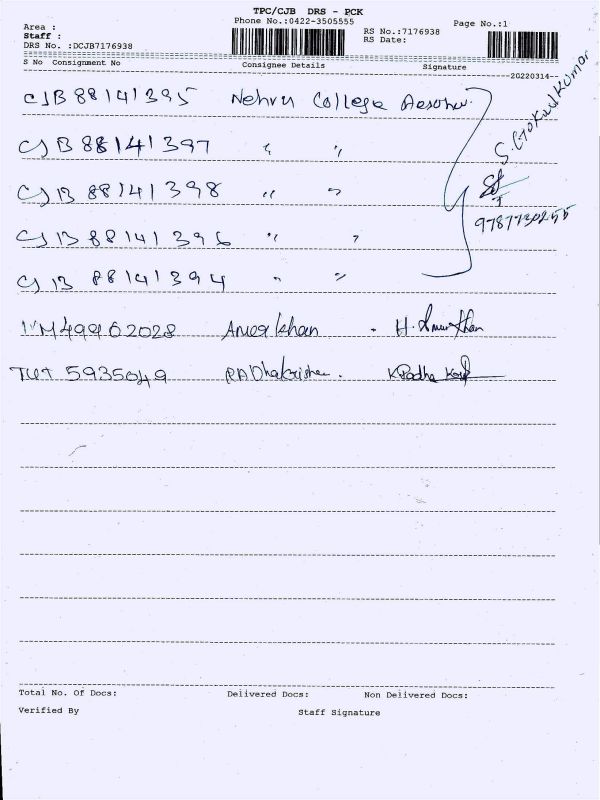 TPC/CJB DRS - PCK
Area : Phone No.:0422-3505555 Page No.:1
Staff : RS No.:7176938
DRS No. :DCJB7176938 RS Date:
S No Consignment No Consignee Details Signature
20220314
CJB 88141395 Nehru College
CJB 88141397 〃 〃
CJB 88141398 〃 〃
CJB 88141396 〃 〃
CJB 88141394 〃 〃
S. Gokul Kumar
9787730255
49962028 Ameer khan - H.
TUT 5935049 RADhakrishnan.
Total No. Of Docs: Delivered Docs: Non Delivered Docs:
Verified By Staff Signature